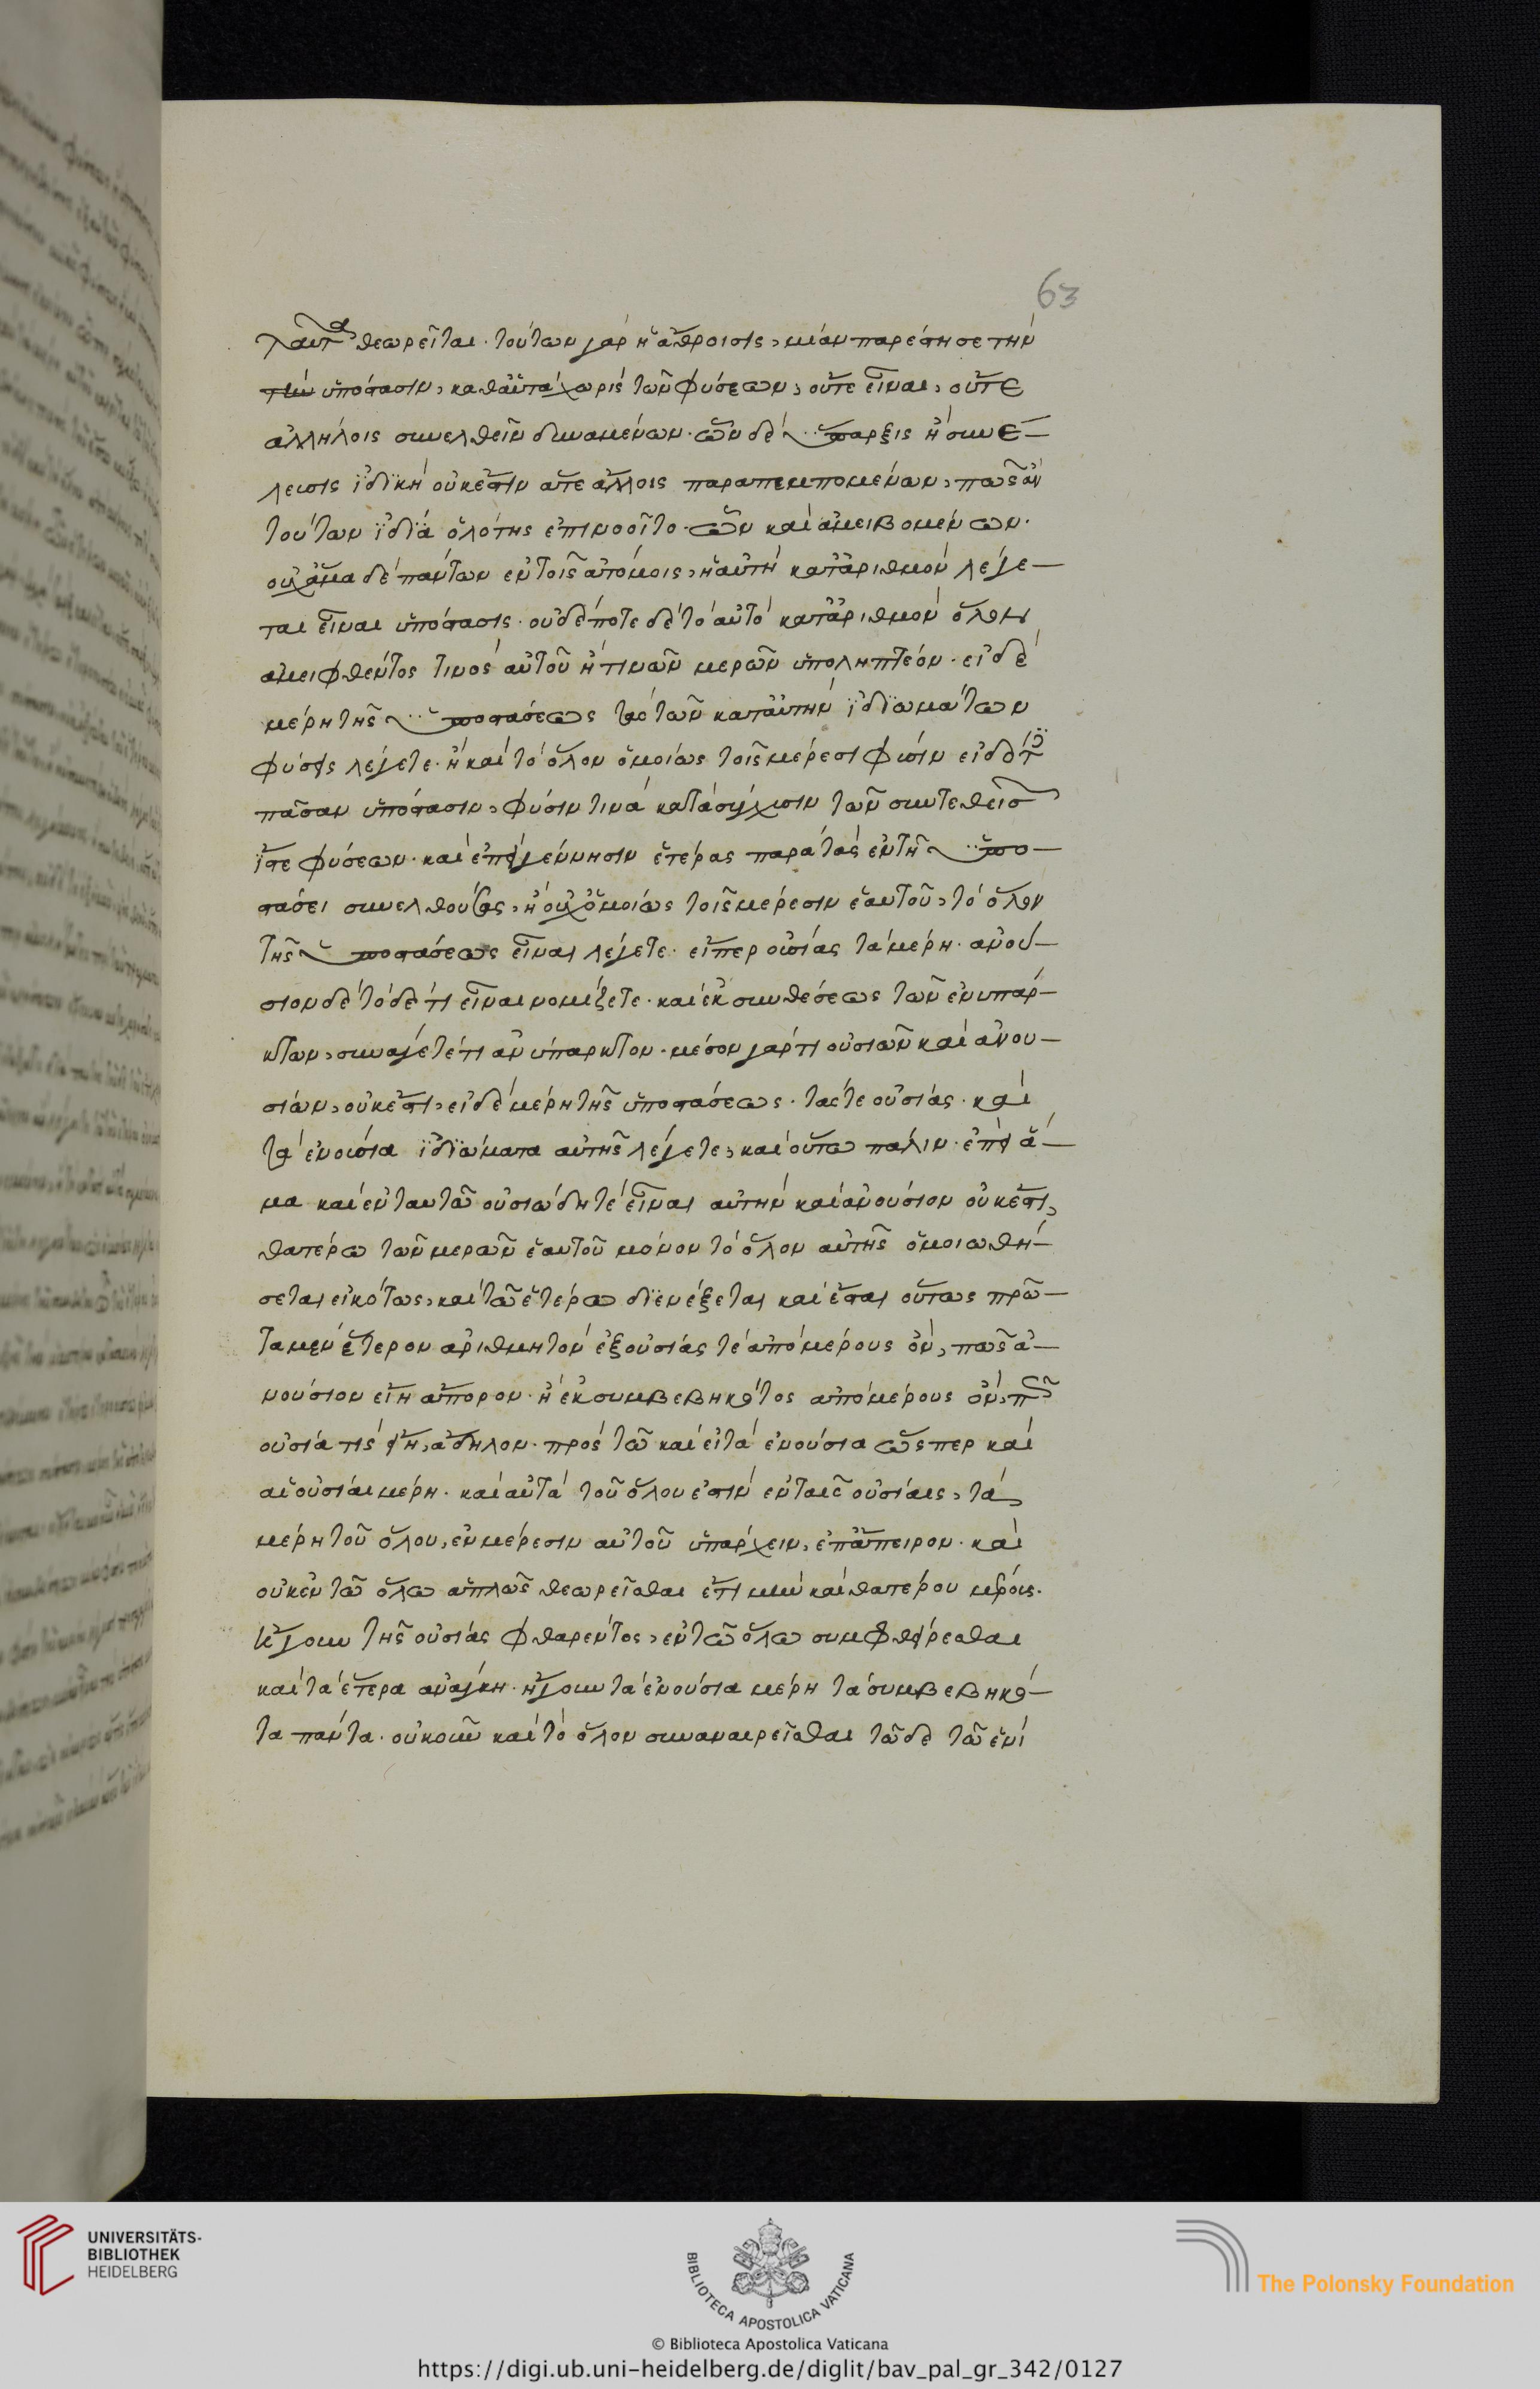 63
θεωρεῖται· τούτων γὰρ ἡ ἄθροισις, μίαν παρέστησε τὴν
τὴν ὑπόστασιν, καθαὑτὰ χωρὶς τῶν φύσεων, οὔτε εἶναι, οὔτε
ἀλλήλοις συνελθεῖν δυναμένων· ὧν δὲ ὕπαρξις ἢ συνέ–
λευσις ἰδϊκὴ οὐκέστιν ἅτε ἄλλοις παραπεμπομένων, πῶς ἂν
τούτων ἰδία ὁλότης ἐπινοοῖτο· ὧν καὶ ἀμειβομένων·
οὐχάμα δὲ πάντων ἐν τοῖς ἀτόμοις, ἡ αὐτὴ κατἀριθμὸν λέγε–
ται εἶναι ὑπόστασις· οὐδέποτε δὲ τὸ αὐτὸ κατἀριθμὸν ὅλον
ἀμειφθέντος τινὸς αὐτοῦ ἢ τινῶν μερῶν ὑποληπτέον· εἰ δὲ
μέρη τῆς ὑποστάσεως τῶν κατ αὐτὴν ἰδϊωμάτων
φύσεις λέγετε· ἢ καὶ τὸ ὅλον ὁμοίως τοῖς μέρεσι φύσιν
πᾶσαν ὑπόστασιν, φύσιν τινὰ κατὰ σύγχυσιν τῶν συντεθεισ
φύσεων· καὶ ἐπιγέννησιν ἑτέρας παρὰ τὰς ἐν τῇ ὑπο–
στάσει συνελθούσας, ἢ οὐχ ὁμοίως τοῖς μέρεσιν ἑαυτοῦ, τὸ ὅλον
τῆς ὑποστάσεως εἶναι λέγετε· εἴπερ οὐσίας τὰ μέρη· ἀνού–
σιον δὲ τόδέ τι εἶναι νομίζετε· καὶ ἐκ συνθέσεως τῶν ἐνυπάρ–
κτων, συναγετέ τι ἀνύπαρκτον· μέσον γάρ τι οὐσιῶν καὶ ἀνου–
σίων, οὐκέστι, εἰ δὲ μέρη τῆς ὑποστάσεως· τάς τε οὐσίας· καὶ
τὰ ἐνούσια ἰδϊώματα αὐτῆς λέγετε, καὶ οὕτω πάλιν· ἐπεὶ ἅ–
μα καὶ ἐν ταυτῶ οὐσιώδη τὲ εἶναι αὐτὴν καὶ ἀνούσιον οὐκέστι,
θατέρω τῶν μερῶν ἑαυτοῦ μόνον τὸ ὅλον αὐτῆς ὁμοιωθή–
σεται εἰκότως, καὶ τῶ ἑτέρω διενέξεται καὶ ἔσται οὕτως πρῶ–
τα μὲν ἕτερον ἀριθμητὸν ἐξ οὐσίας τὲ ἀπὸ μέρους ὂν, πῶς ἀ–
νούσιον εἴη ἄπορον· ἢ ἐκ συμβεβηκότος ἀπὸ μέρους ὂν, πῶς
οὐσία τίς εἴη, ἄδηλον· πρὸς τῶ καὶ εἰ τὰ ἐνούσια ὥσπερ καὶ
αἱ οὐσίαι μέρη· καὶ αὐτὰ τοῦ ὅλου ἐστὶν ἐν ταῖς οὐσίαις, τὰ
μέρη τοῦ ὅλου, ἐν μέρεσιν αὐτοῦ ὑπάρχειν, ἐπἄπειρον· καὶ
οὐκ ἐν τῶ ὅλω ἁπλῶς θεωρεῖσθαι ἔτι μὴν καὶ θατέρου μέρους·
ἤγουν τῆς οὐσίας φθαρέντος, ἐν τῶ ὅλω συμφθείρεσθαι
καὶ τὰ ἕτερα ἀνάγκη· ἤγουν τὰ ἐνούσια μέρη τὰ συμβεβηκό–
τα πάντα· οὐκοῦν καὶ τὸ ὅλον συναναιρεῖσθαι τῶδε τῶ ἑνὶ
UNIVERSITÄTS-
BIBLIOTHEK
HEIDELBERG
BIBLIOTECA APOSTOLICA VATICANA
The Polonsky Foundation
© Biblioteca Apostolica Vaticana
https://digi.ub.uni-heidelberg.de/diglit/bav_pal_gr_342/0127